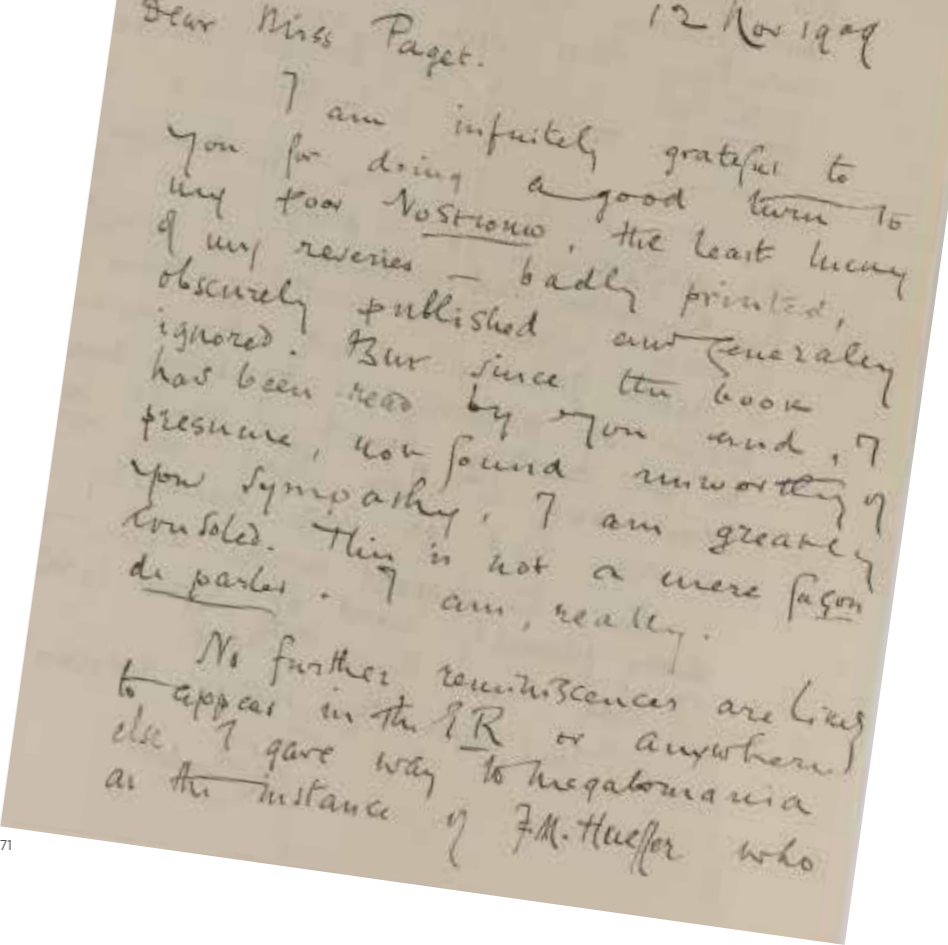 12 Nov 1909
Dear Miss Paget.
I am infinitely grateful to
you for doing a good turn to
my poor Nostromo, the least lucky
of my reveries — badly printed,
obscurely published and generally
ignored. But since the book
has been read by you and, I
presume, not found unworthy of
your sympathy, I am greatly
consoled. This is not a mere façon
de parler. I am, really.
No further reminiscences are likely
to appear in the ER or anywhere
else. I gave way to megalomania
at the instance of F.M. Hueffer who
71